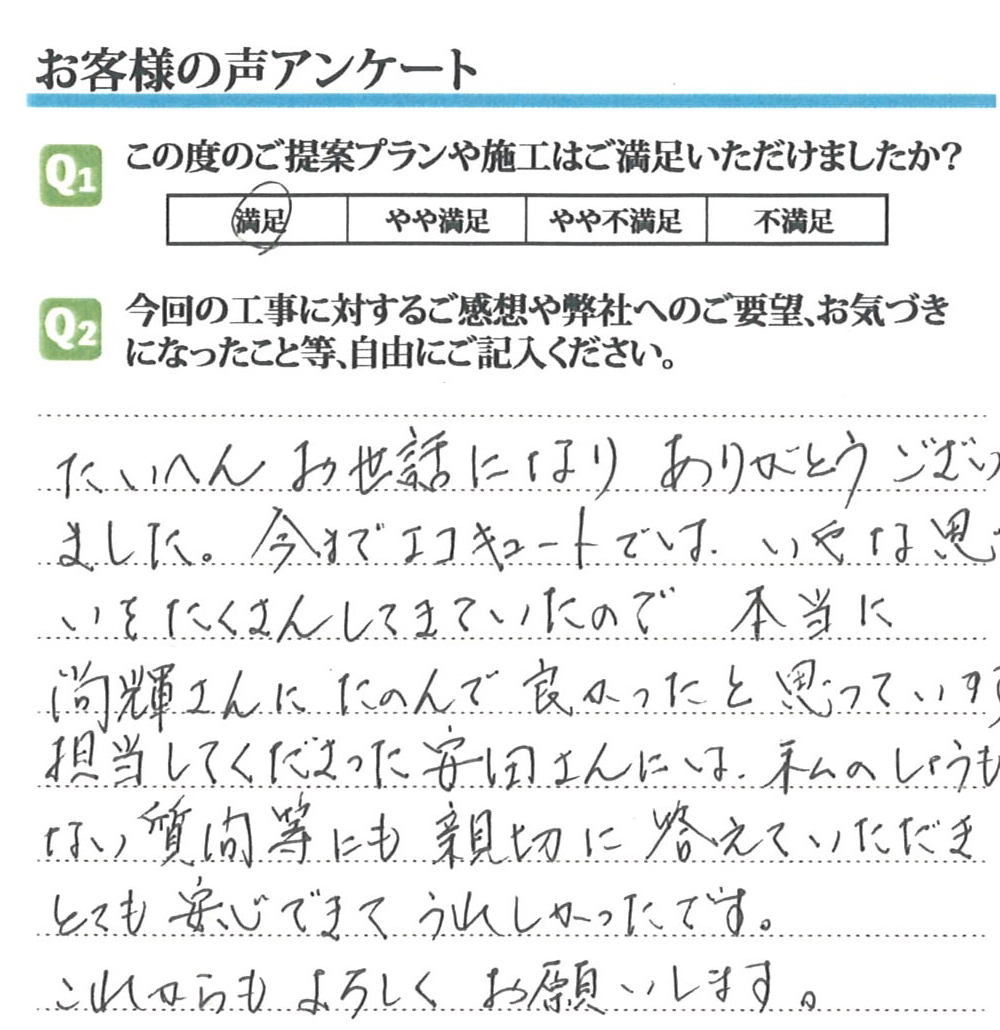 お客様の声アンケート
Q1 この度のご提案プランや施工はご満足いただけましたか?
満足 やや満足 やや不満足 不満足
Q2 今回の工事に対するご感想や弊社へのご要望、お気づき
になったこと等、自由にご記入ください。
たいへん お世話になり ありがとう ござい
ました。今までエコキュートでは、いやな思
いをたくさんしてきていたので 本当に
尚輝さんに たのんで 良かったと 思っています
担当してくださった 安田さんには、私のしょうも
ない 質問等にも 親切に 答えていただき
とても 安心できて うれしかったです。
これからも よろしく お願いします。